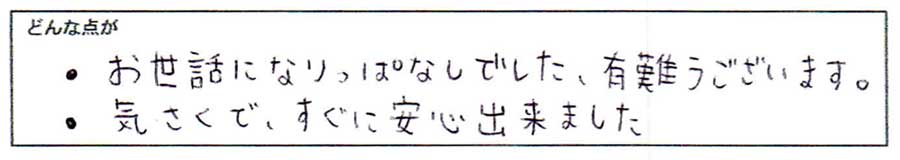 どんな点が
・お世話になりっぱなしでした、有難うございます。
・気さくで、すぐに安心出来ました